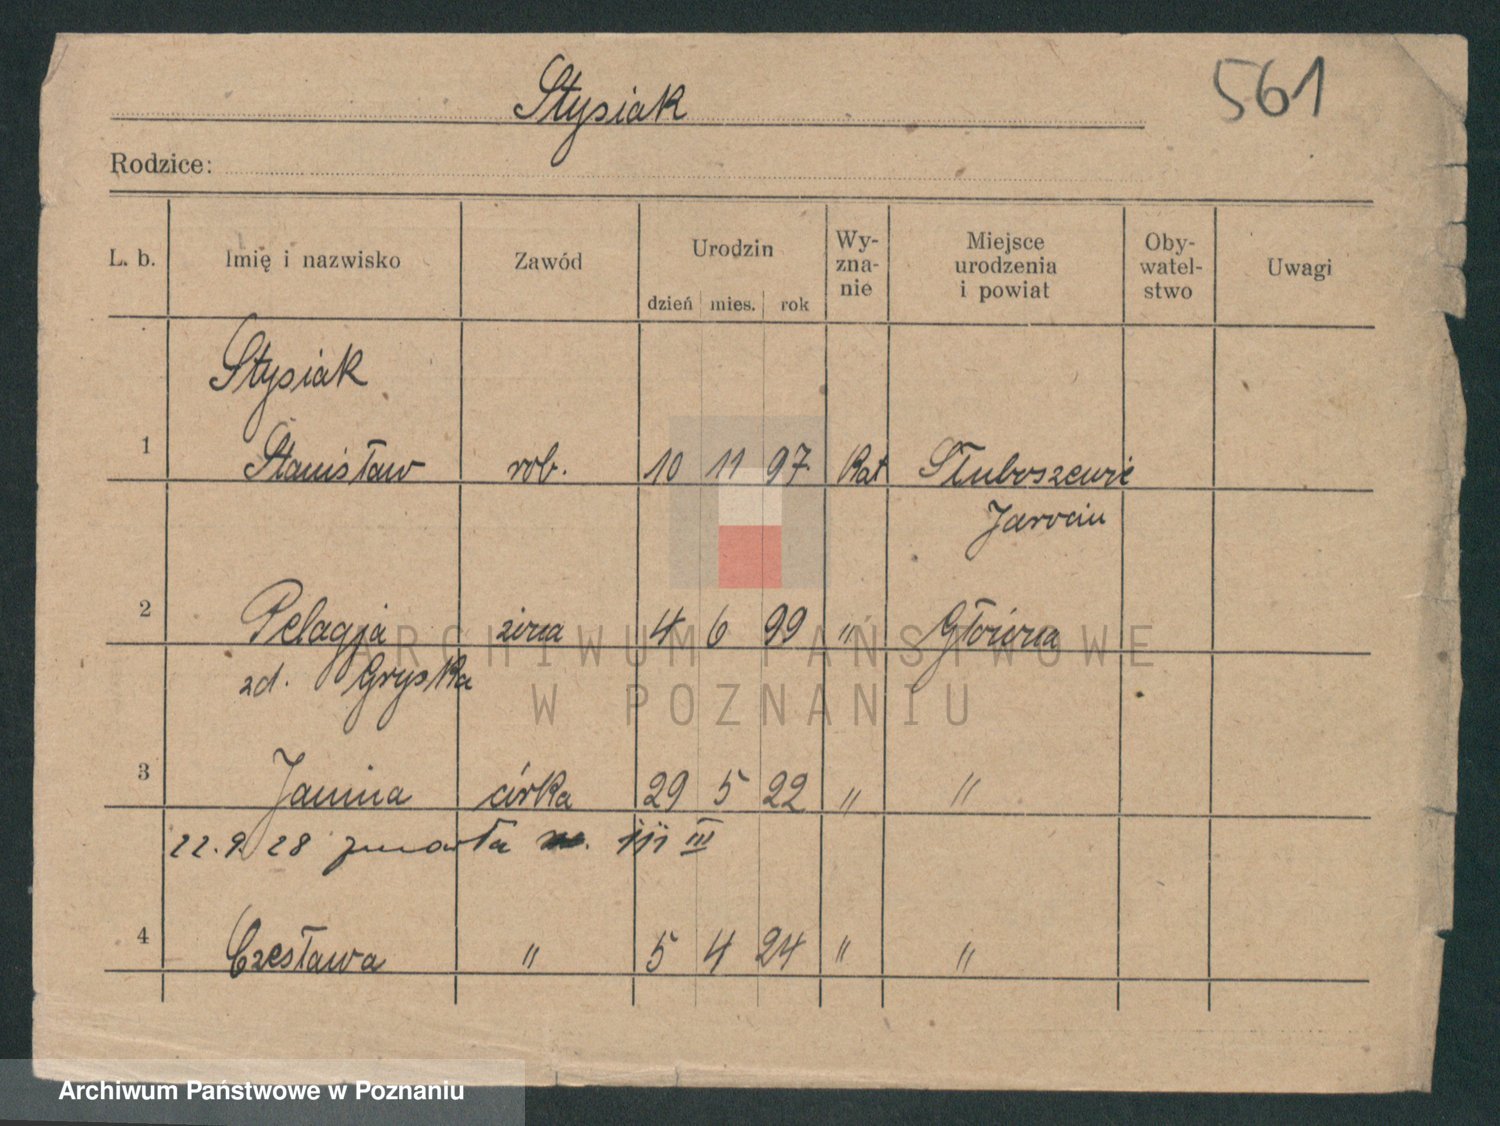 Stysiak
561
Rodzice:
L. b. Imię i nazwisko Zawód Urodzin dzień mies. rok Wy-zna-nie Miejsce urodzenia i powiat Oby-watel-stwo Uwagi
Stysiak
1 Stanisław rob. 10 11 97 Kat Słuboszewie
Jarocin
2 Pelagja żona 4 6 99 " Główna
zd. Gryska
3 Janina córka 29 5 22 " "
22.9.28 zmarła III
4 Czesława " 5 4 24 " "
ARCHIWUM PAŃSTWOWE
W POZNANIU
Archiwum Państwowe w Poznaniu